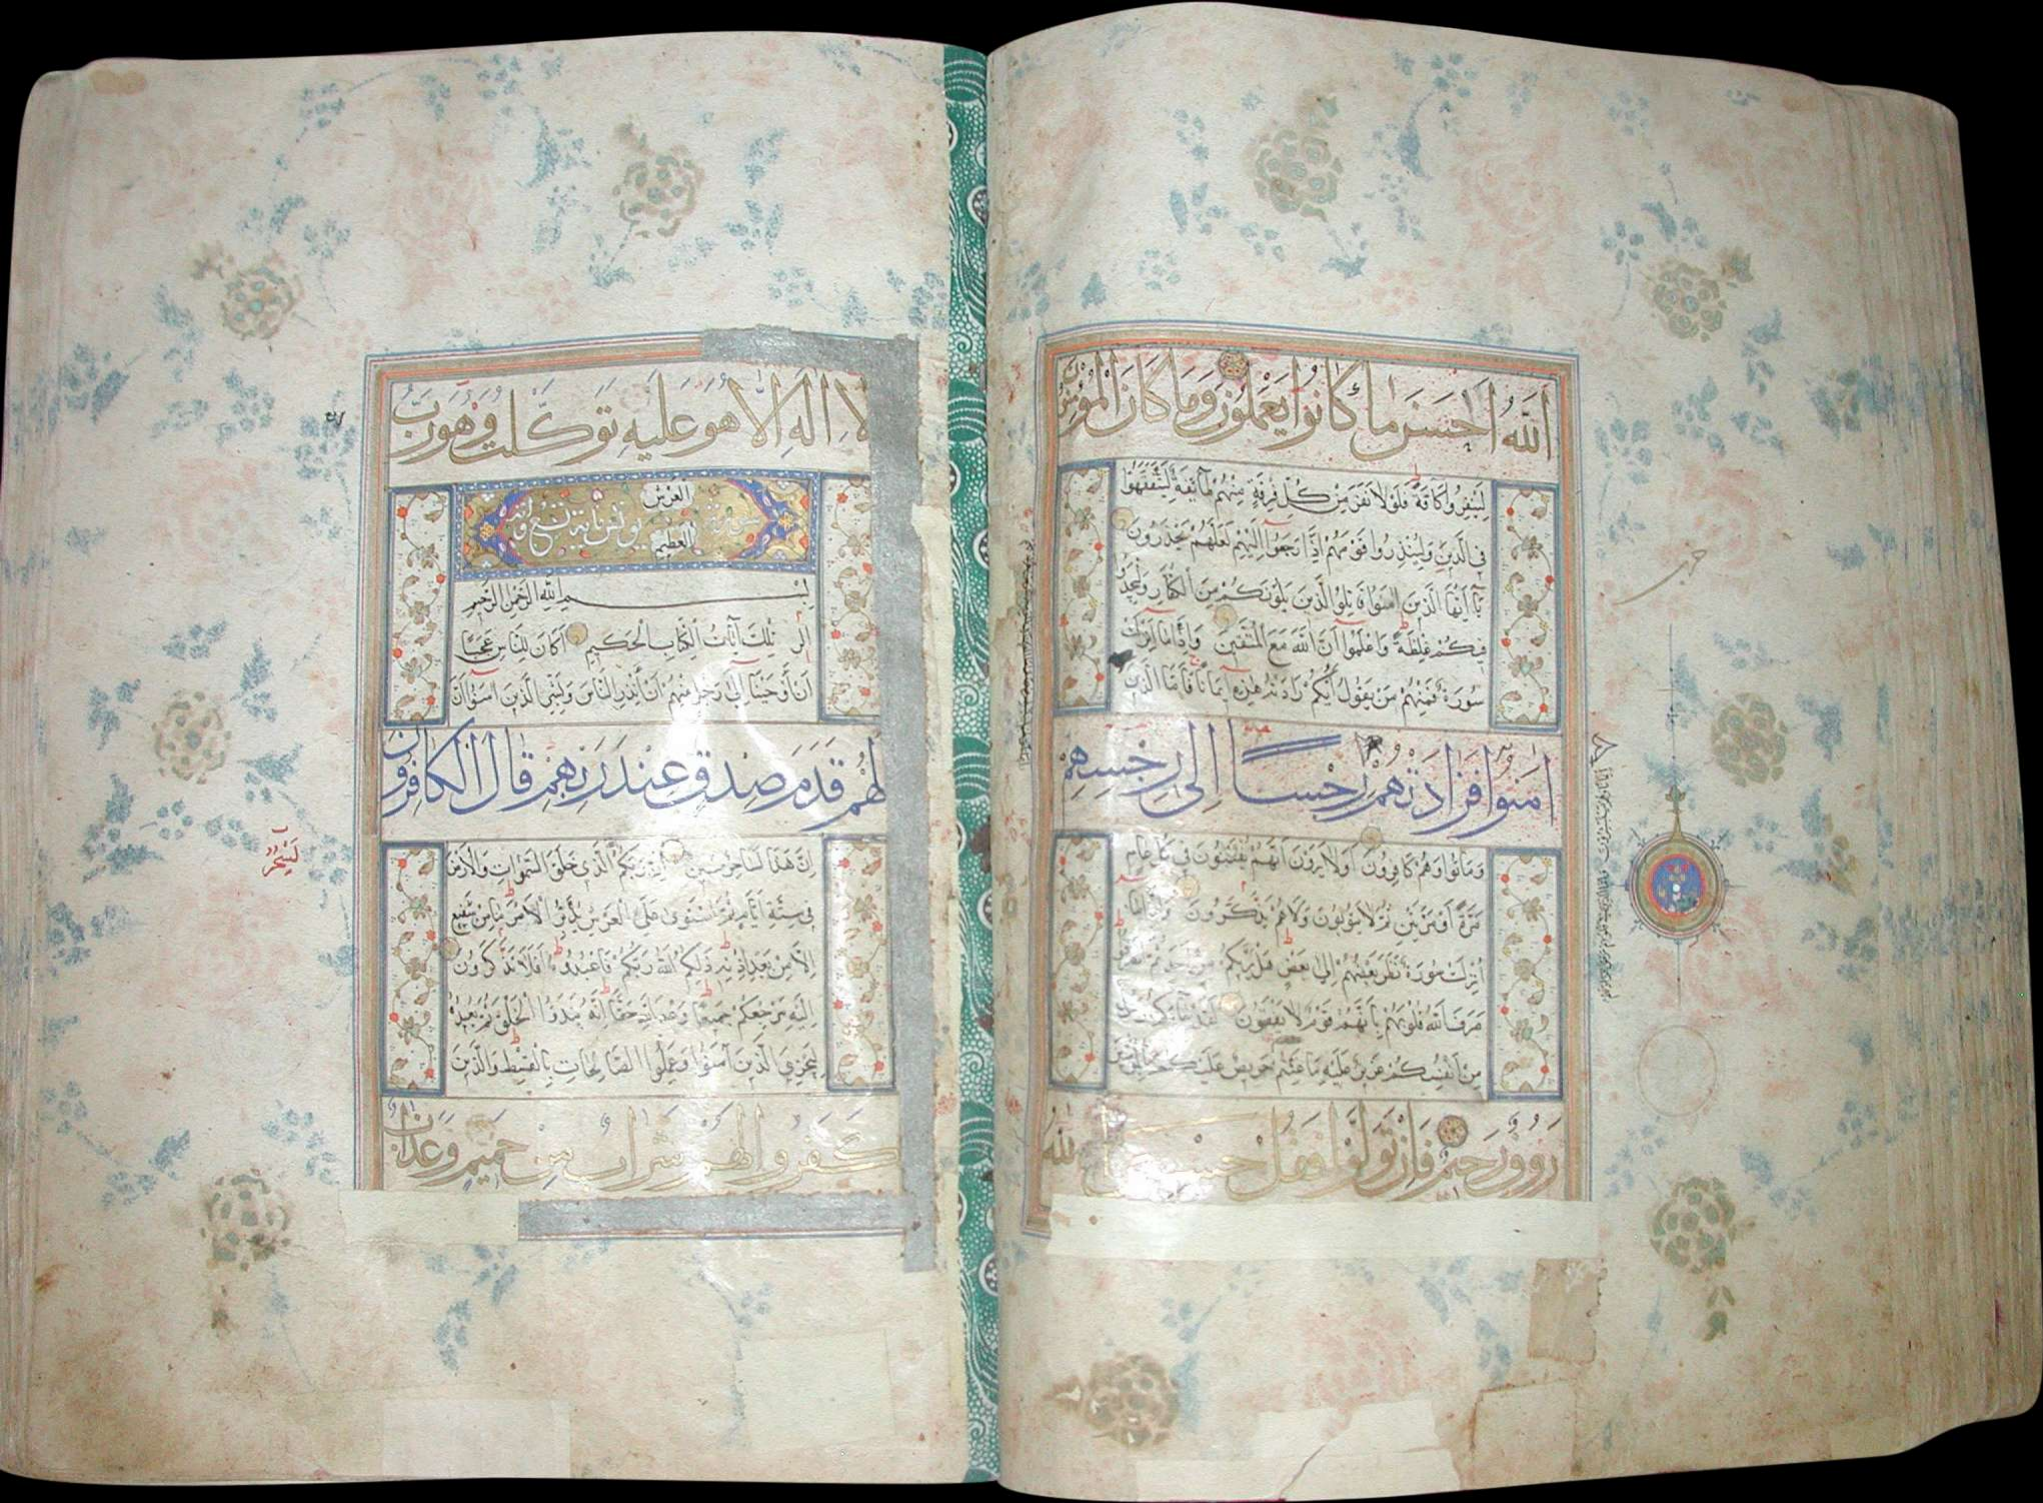 اللَّهُ اَحْسَنَ مَا كَانُوا يَعْمَلُونَ وَمَا كَانَ الْمُؤْمِنُونَ
لِيَنْفِرُوا كَافَّةً فَلَوْلَا نَفَرَ مِنْ كُلِّ فِرْقَةٍ مِنْهُمْ طَائِفَةٌ لِيَتَفَقَّهُوا
فِي الدِّينِ وَلِيُنْذِرُوا قَوْمَهُمْ إِذَا رَجَعُوا إِلَيْهِمْ لَعَلَّهُمْ يَحْذَرُونَ
يَا أَيُّهَا الَّذِينَ امَنُوا قَاتِلُوا الَّذِينَ يَلُونَكُمْ مِنَ الْكُفَّارِ وَلْيَجِدُوا
فِيكُمْ غِلْظَةً وَاعْلَمُوا أَنَّ اللَّهَ مَعَ الْمُتَّقِينَ وَإِذَا مَا أُنْزِلَتْ
سُورَةٌ فَمِنْهُمْ مَنْ يَقُولُ أَيُّكُمْ زَادَتْهُ هَذِهِ إِيمَانًا فَأَمَّا الَّذِينَ
امَنُوا فَزَادَتْهُمْ رِجْسًا إِلَى رِجْسِهِمْ
وَمَاتُوا وَهُمْ كَافِرُونَ أَوَلَا يَرَوْنَ أَنَّهُمْ يُفْتَنُونَ فِي كُلِّ عَامٍ
مَرَّةً أَوْ مَرَّتَيْنِ ثُمَّ لَا يَتُوبُونَ وَلَا هُمْ يَذَّكَّرُونَ وَإِذَا مَا
أُنْزِلَتْ سُورَةٌ نَظَرَ بَعْضُهُمْ إِلَى بَعْضٍ هَلْ يَرَاكُمْ مِنْ أَحَدٍ ثُمَّ انْصَرَفُوا
صَرَفَ اللَّهُ قُلُوبَهُمْ بِأَنَّهُمْ قَوْمٌ لَا يَفْقَهُونَ لَقَدْ جَاءَكُمْ رَسُولٌ
مِنْ أَنْفُسِكُمْ عَزِيزٌ عَلَيْهِ مَا عَنِتُّمْ حَرِيصٌ عَلَيْكُمْ بِالْمُؤْمِنِينَ
رَؤُوفٌ رَحِيمٌ فَإِنْ تَوَلَّوْا فَقُلْ حَسْبِيَ اللَّهُ
حزب
لَا إِلَهَ إِلَّا هُوَ عَلَيْهِ تَوَكَّلْتُ وَهُوَ رَبُّ
الْعَرْشِ
سورة يونس مائة تسع
الْعَظِيمِ
بِسْمِ اللَّهِ الرَّحْمَنِ الرَّحِيمِ
الر تِلْكَ آيَاتُ الْكِتَابِ الْحَكِيمِ أَكَانَ لِلنَّاسِ عَجَبًا
أَنْ أَوْحَيْنَا إِلَى رَجُلٍ مِنْهُمْ أَنْ أَنْذِرِ النَّاسَ وَبَشِّرِ الَّذِينَ امَنُوا أَنَّ
لَهُمْ قَدَمَ صِدْقٍ عِنْدَ رَبِّهِمْ قَالَ الْكَافِرُونَ
إِنَّ هَذَا لَسَاحِرٌ مُبِينٌ إِنَّ رَبَّكُمُ الَّذِي خَلَقَ السَّمَوَاتِ وَالْأَرْضَ
فِي سِتَّةِ أَيَّامٍ ثُمَّ اسْتَوَى عَلَى الْعَرْشِ يُدَبِّرُ الْأَمْرَ مَا مِنْ شَفِيعٍ
إِلَّا مِنْ بَعْدِ إِذْنِهِ ذَلِكُمُ اللَّهُ رَبُّكُمْ فَاعْبُدُوهُ أَفَلَا تَذَكَّرُونَ
إِلَيْهِ مَرْجِعُكُمْ جَمِيعًا وَعْدَ اللَّهِ حَقًّا إِنَّهُ يَبْدَؤُا الْخَلْقَ ثُمَّ يُعِيدُهُ
لِيَجْزِيَ الَّذِينَ آمَنُوا وَعَمِلُوا الصَّالِحَاتِ بِالْقِسْطِ وَالَّذِينَ
كَفَرُوا لَهُمْ شَرَابٌ مِنْ حَمِيمٍ وَعَذَابٌ